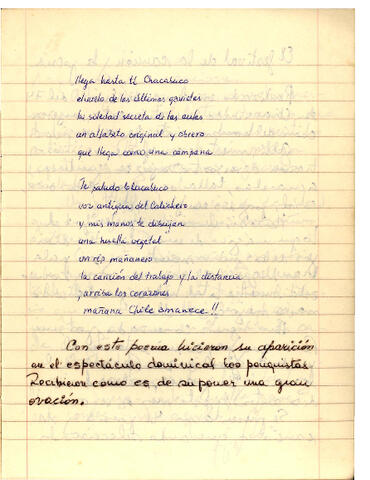 llega hasta ti Chacabuco
el vuelo de las últimas gaviotas
la soledad secreta de las aulas
un alfabeto original y obrero
que llega como una campana
Te saludo Chacabuco
voz antigua del Calichero
y mis manos te dibujan
una huella vegetal
un rip mañanero
la canción del trabajo y la distancia
¡arriba los corazones
mañana Chile amanece!!
Con este poema hicieron su aparición
en el espectáculo dominical los
Recibieron como es de suponer una gran
ovación.